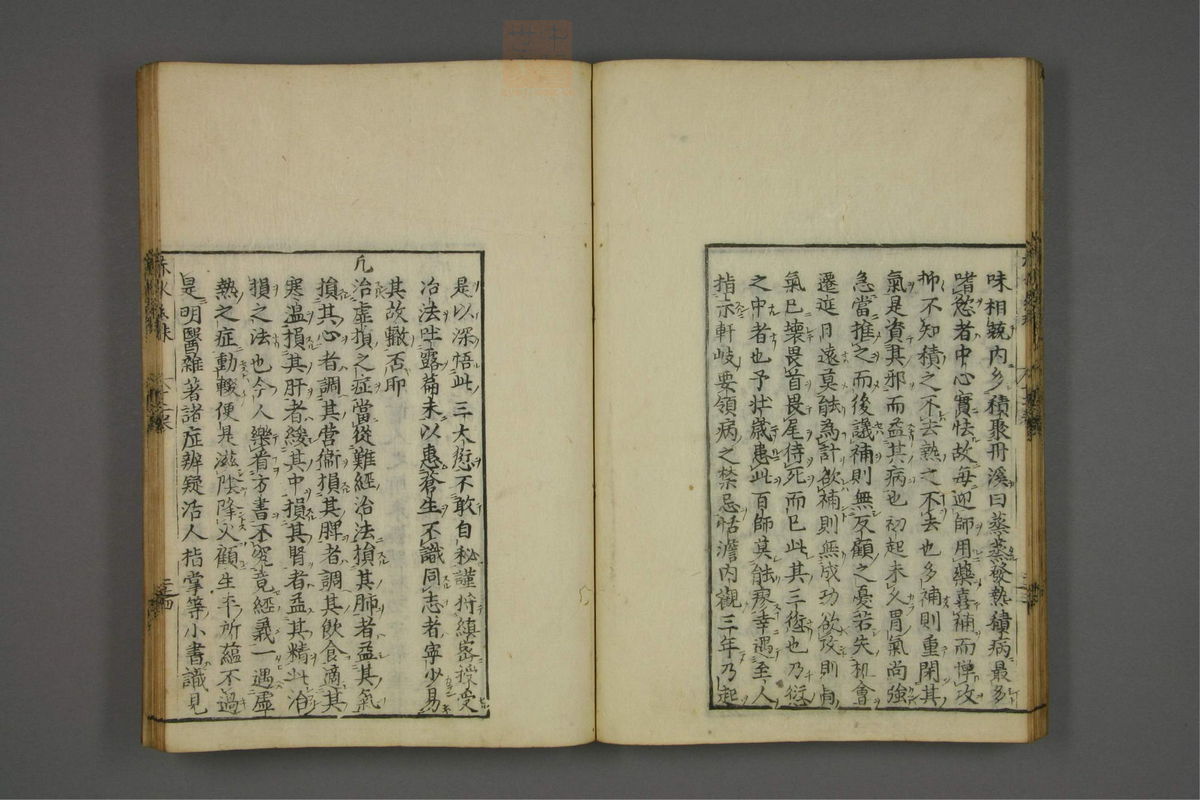 味相兢内多積聚丹溪曰蒸蒸發熱積病最多
嗜慾者中心實怯故每迎師用藥喜補而憚攻
不知積之不去熱之不去也多補則重閉其
氣是資其邪而益其病也初起未久胃氣尚強
急當推之而後議補則無反顧之憂若失机會
遷延日遠莫能為計欲補則無成功欲攻則胃
氣已壞畏首畏尾待死而已此其三愆也乃愆
之中者也予壮歲患此百師莫能療幸遇至人
指示軒岐要領病之禁忌恬澹内觀三年乃起
是以深悟此三大愆不敢自秘謹将縝密授受
治法吐露篇末以惠蒼生不識同志者寧少易
其故轍否耶
凡治虛損之症當從難經治法損其肺者益其氣
損其心者調其營衞損其脾者調其飲食適其
寒温損其肝者緩其中損其腎者益其精此治
損之法也今人樂着方書不究竟經義一遇虛
熱之症動輙便是滋陰降火顧生平所蘊不過
是明醫雜著諸症辨疑活人指掌等小書識見